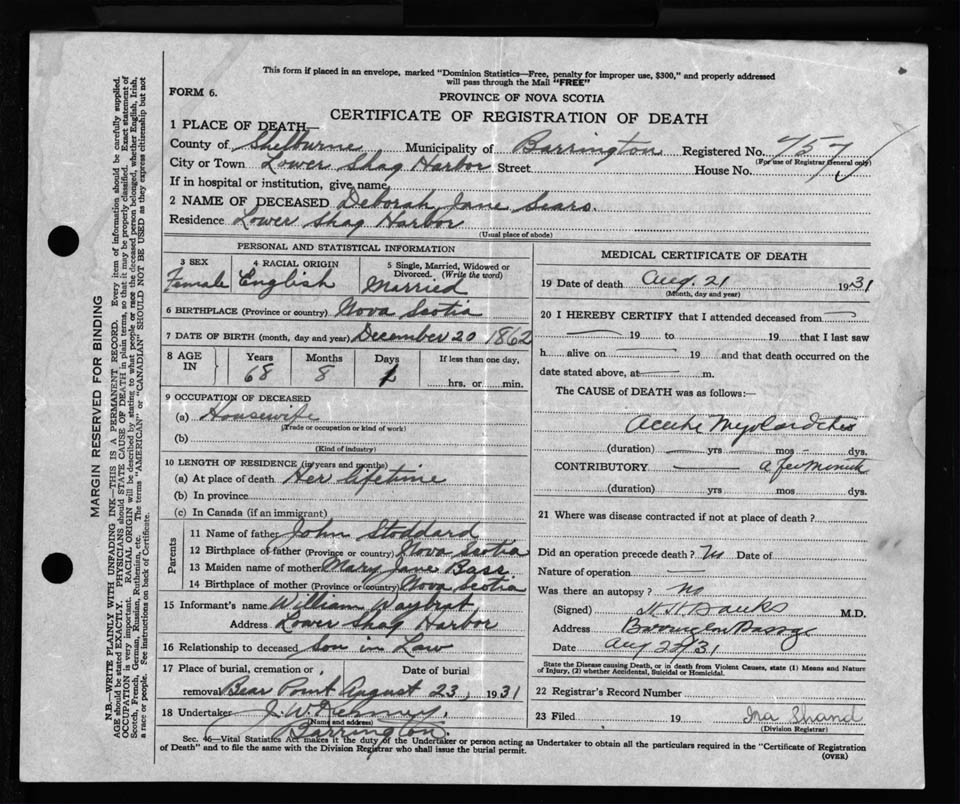 This form if placed in an envelope, marked "Dominion Statistics—Free, penalty for improper use, $300," and properly addressed
will pass through the Mail "FREE"
FORM 6.
PROVINCE OF NOVA SCOTIA
CERTIFICATE OF REGISTRATION OF DEATH
1 PLACE OF DEATH—
County of Shelburne Municipality of Barrington Registered No. 757
(For use of Registrar General only)
City or Town Lower Shag Harbor Street House No.
If in hospital or institution, give name
2 NAME OF DECEASED Deborah Jane Sears.
Residence Lower Shag Harbor
(Usual place of abode)
PERSONAL AND STATISTICAL INFORMATION
3 SEX 4 RACIAL ORIGIN 5 Single, Married, Widowed or
Divorced. (Write the word)
Female English Married
6 BIRTHPLACE (Province or country) Nova Scotia
7 DATE OF BIRTH (month, day and year) December 20 1862
8 AGE IN Years Months Days If less than one day,
68 8 1 hrs. or min.
9 OCCUPATION OF DECEASED
(a) Housewife
(Trade or occupation or kind of work)
(b)
(Kind of industry)
10 LENGTH OF RESIDENCE (in years and months)
(a) At place of death Her lifetime
(b) In province
(c) In Canada (if an immigrant)
Parents
11 Name of father John Stoddard
12 Birthplace of father (Province or country) Nova Scotia
13 Maiden name of mother Mary Jane Bass
14 Birthplace of mother (Province or country) Nova Scotia
15 Informant's name William Waybrat,
Address Lower Shag Harbor
16 Relationship to deceased Son in Law
17 Place of burial, cremation or removal Date of burial
Bear Point August 23, 1931
18 Undertaker J. W.
(Name and address)
Barrington.
MEDICAL CERTIFICATE OF DEATH
19 Date of death Aug. 21 1931
(Month, day and year)
20 I HEREBY CERTIFY that I attended deceased from
19 to 19 that I last saw
h alive on 19 and that death occurred on the
date stated above, at m.
The CAUSE of DEATH was as follows:—
Acute
(duration) yrs mos - dys.
CONTRIBUTORY a few minutes
(duration) yrs mos dys.
21 Where was disease contracted if not at place of death?
Did an operation precede death? No Date of
Nature of operation
Was there an autopsy? No
(Signed) Banks M.D.
Address
Date Aug 22/31
State the Disease causing Death, or in death from Violent Causes, state (1) Means and Nature
of Injury, (2) whether Accidental, Suicidal or Homicidal.
22 Registrar's Record Number
23 Filed 19 Ina Shand
(Division Registrar)
Sec. 46—Vital Statistics Act makes it the duty of the Undertaker or person acting as Undertaker to obtain all the particulars required in the "Certificate of Registration
of Death" and to file the same with the Division Registrar who shall issue the burial permit.
(OVER)
MARGIN RESERVED FOR BINDING
N.B.—WRITE PLAINLY WITH UNFADING INK—THIS IS A PERMANENT RECORD. Every item of information should be carefully supplied.
AGE should be stated EXACTLY. PHYSICIANS should STATE CAUSE OF DEATH in plain terms, so that it may be properly classified. Exact statement of
OCCUPATION is very important. RACIAL ORIGIN will be described by stating to what people or race the deceased person belonged, whether English, Irish,
Scotch, French, German, Russian, Ruthenian, etc. The terms "AMERICAN" or "CANADIAN" SHOULD NOT BE USED as they express citizenship but not
a race or people. See instructions on back of Certificate.